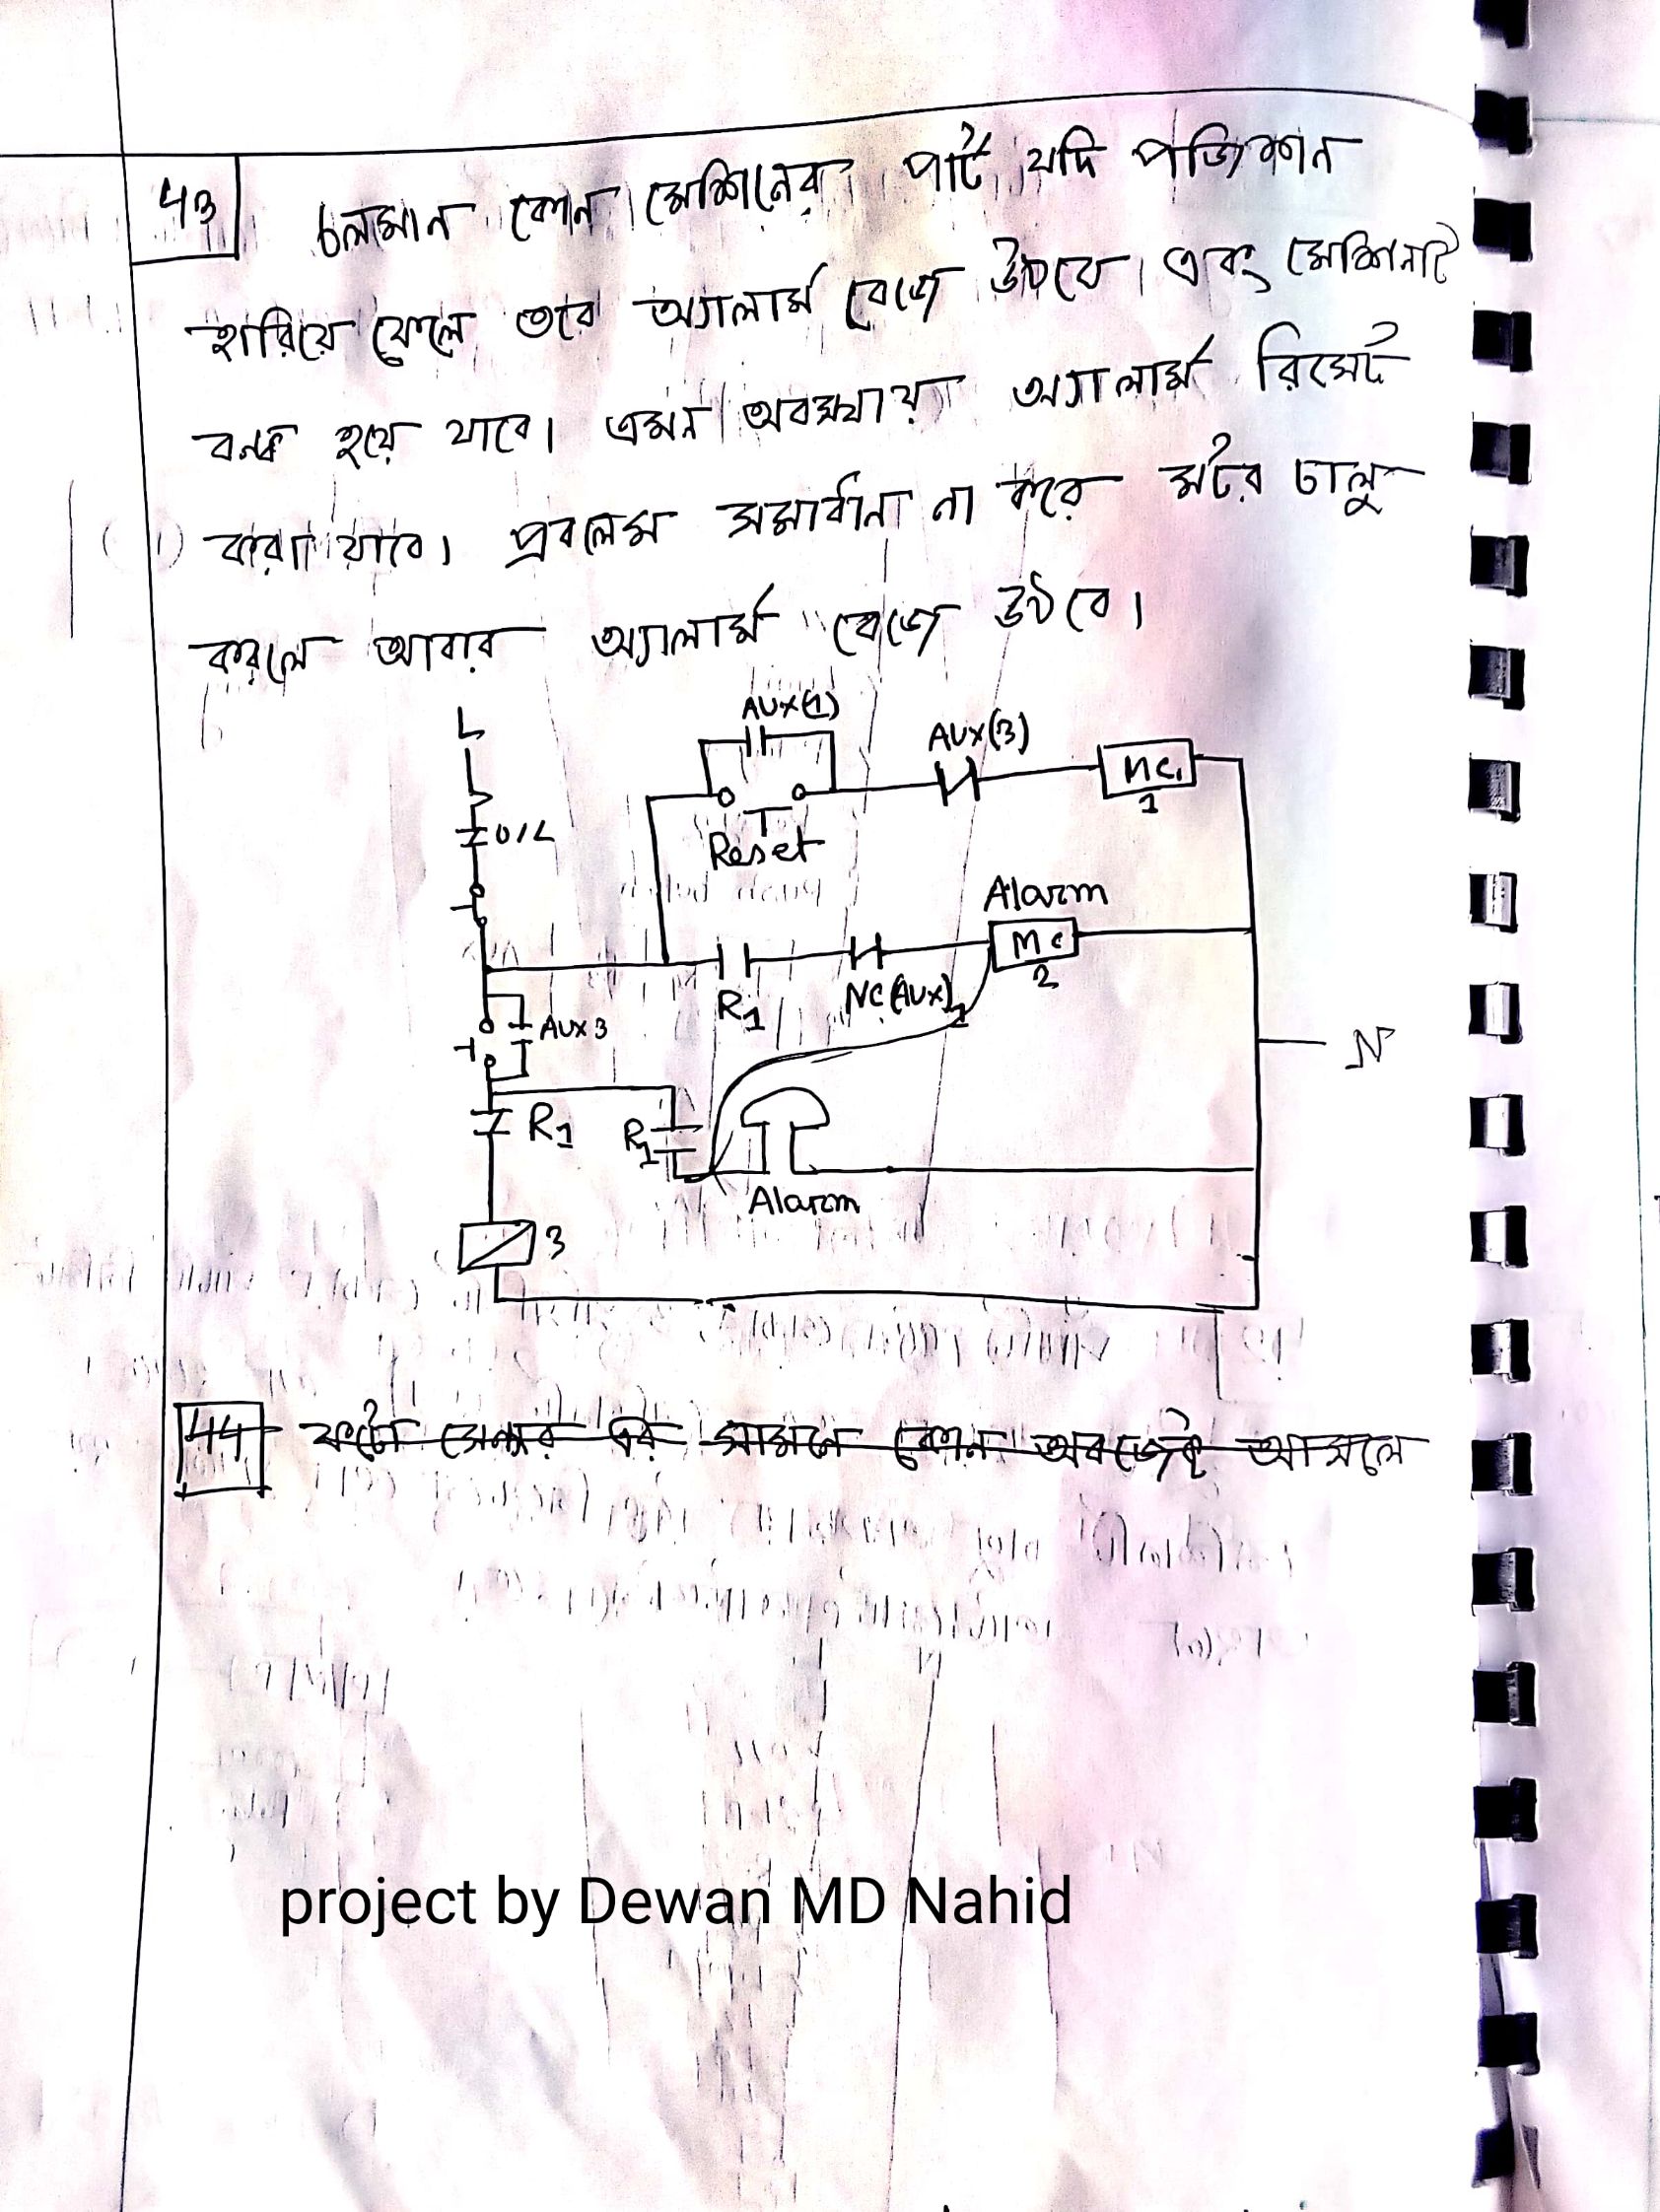 43
চলমান কোন মেশিনের পার্ট যদি পজিশান
হারিয়ে ফেলে তবে অ্যালার্ম বেজে উঠবে। এবং মেশিনটি
বন্ধ হয়ে যাবে। এমন অবস্থায় অ্যালার্ম রিসেট
করা যাবে। প্রবলেম সমাধান না করে মটর চালু
করলে আবার অ্যালার্ম বেজে উঠবে।
L
AUX(1)
AUX(3)
MC1
1
O/L
Reset
Alarm
MC
2
R1
NC(AUX)1
AUX3
N
R1
R1
Alarm
3
44 ফটো সেন্সর এর সামনে কোন অবজেক্ট আসলে
project by Dewan MD Nahid